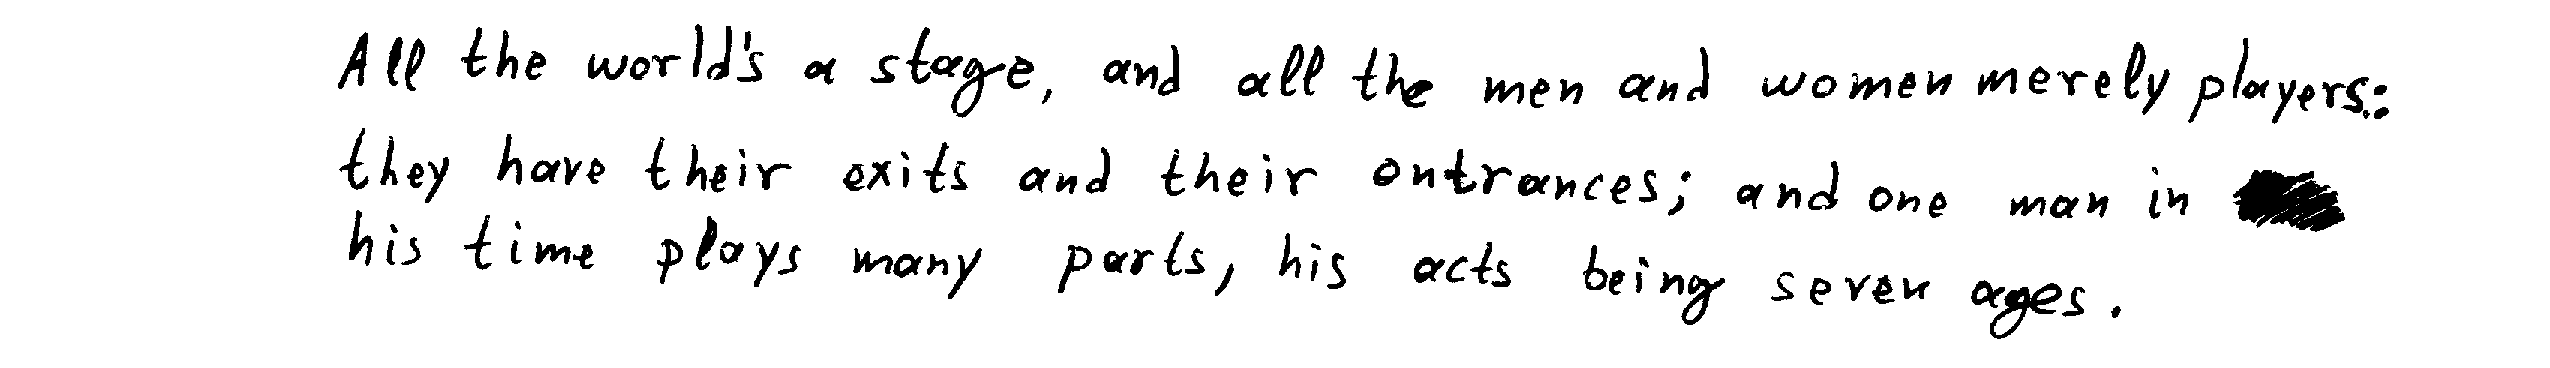 All the world's a stage, and all the men and women merely players:
they have their exits and their ontrances; and one man in
his time plays many parts, his acts being seven ages.